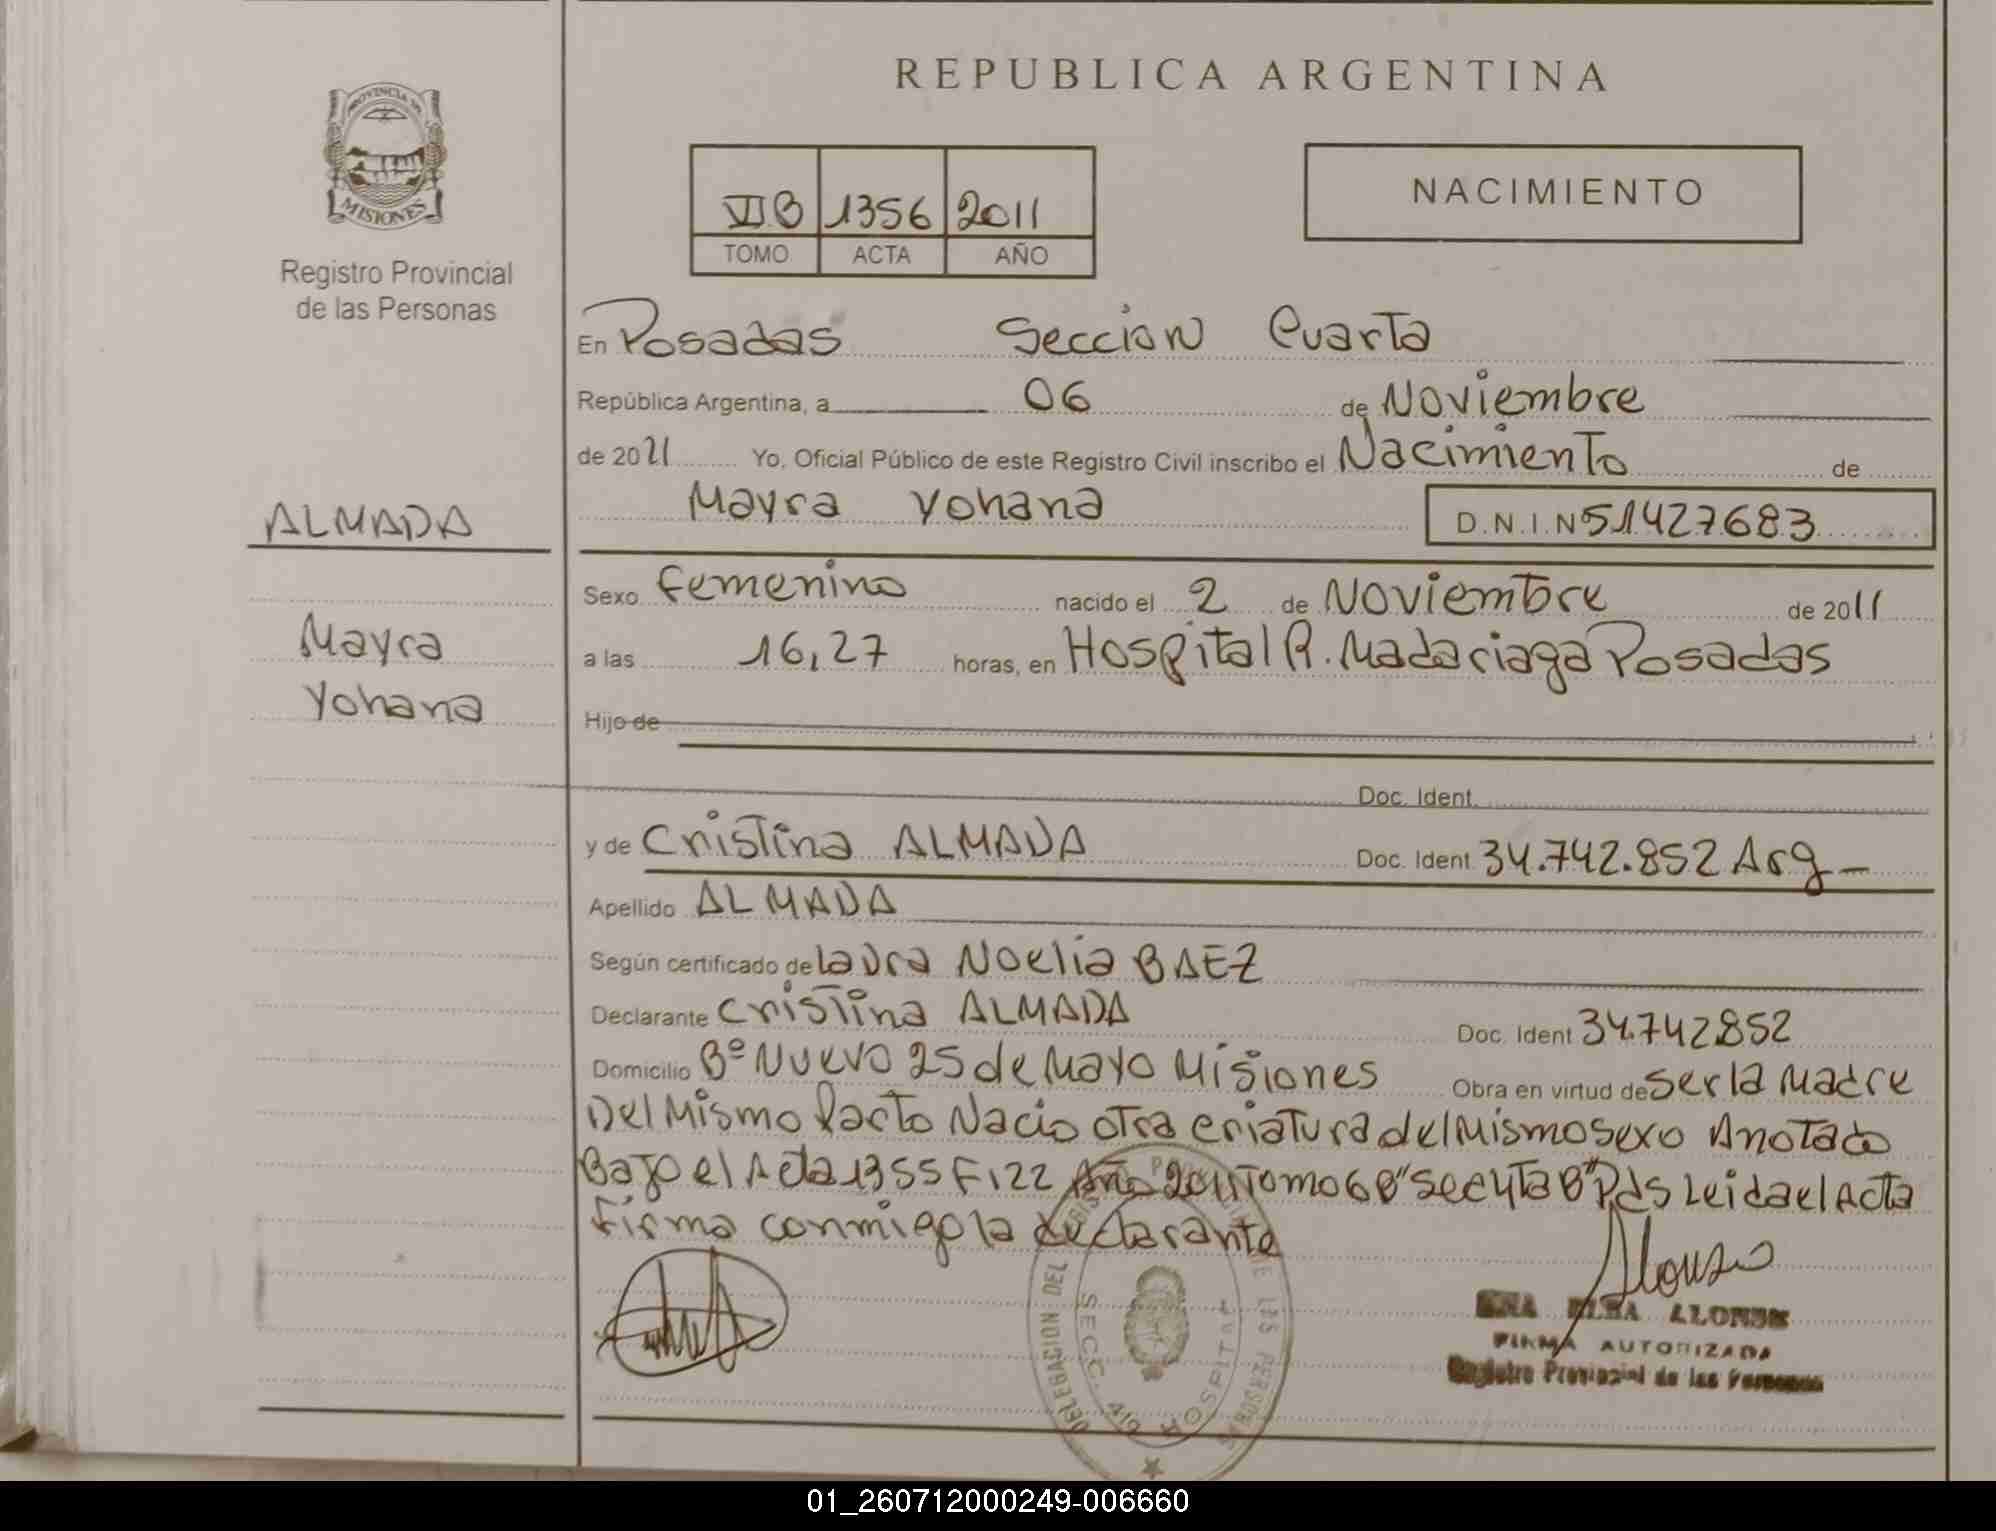 REPUBLICA ARGENTINA
PROVINCIA DE
MISIONES
Registro Provincial
de las Personas
VI B 1356 2011
TOMO ACTA AÑO
NACIMIENTO
En Posadas Seccion Cuarta
República Argentina, a 06 de Noviembre
de 2011 Yo, Oficial Público de este Registro Civil inscribo el Nacimiento de
Mayra Yohana D.N.I.N 51427683
ALMADA
Mayra
Yohana
Sexo femenino nacido el 2 de Noviembre de 2011
a las 16,27 horas, en Hospital R. Madariaga Posadas
Hijo de
Doc. Ident.
y de Cristina ALMADA Doc. Ident. 34.742.852 Arg
Apellido ALMADA
Según certificado de Laura Noelia BAEZ
Declarante Cristina ALMADA Doc. Ident 34.742852
Domicilio Bº Nuevo 25 de Mayo Misiones Obra en virtud de ser la Madre
Del Mismo Parto Nacio otra criatura del Mismo sexo Anotado
Bajo el Acta 1355 F 122 Año 2011 Tomo 6 B" Sec 4ta B" Pds Leida el Acta
firma conmigo la declarante
Alonso
FIRMA AUTORIZADA
Registro Provincial de las Personas
DELEGACION DEL
SECC. 4ta HOSPITAL
01_260712000249-006660